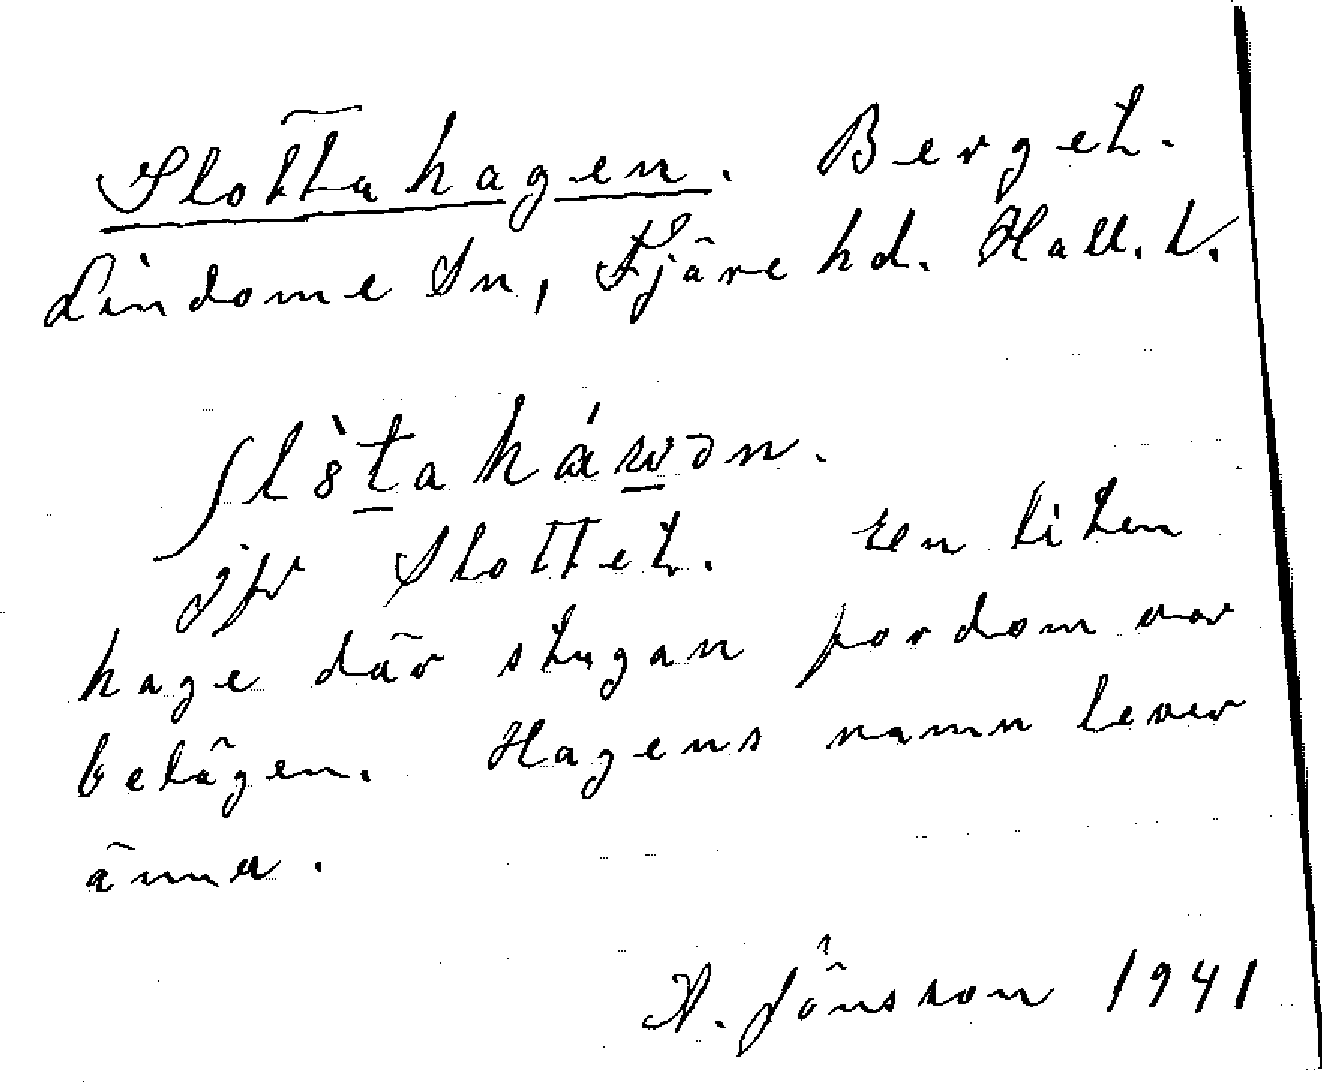 Slottahagen. Berget.
Lindome Sn, Fjäre hd. Hall. l.
ʃl8̀ta háwən.
jfr Slottet. En liten
hage där stugan fordom var
belägen. Hagens namn lever
ännu.
A. Jönsson 1941